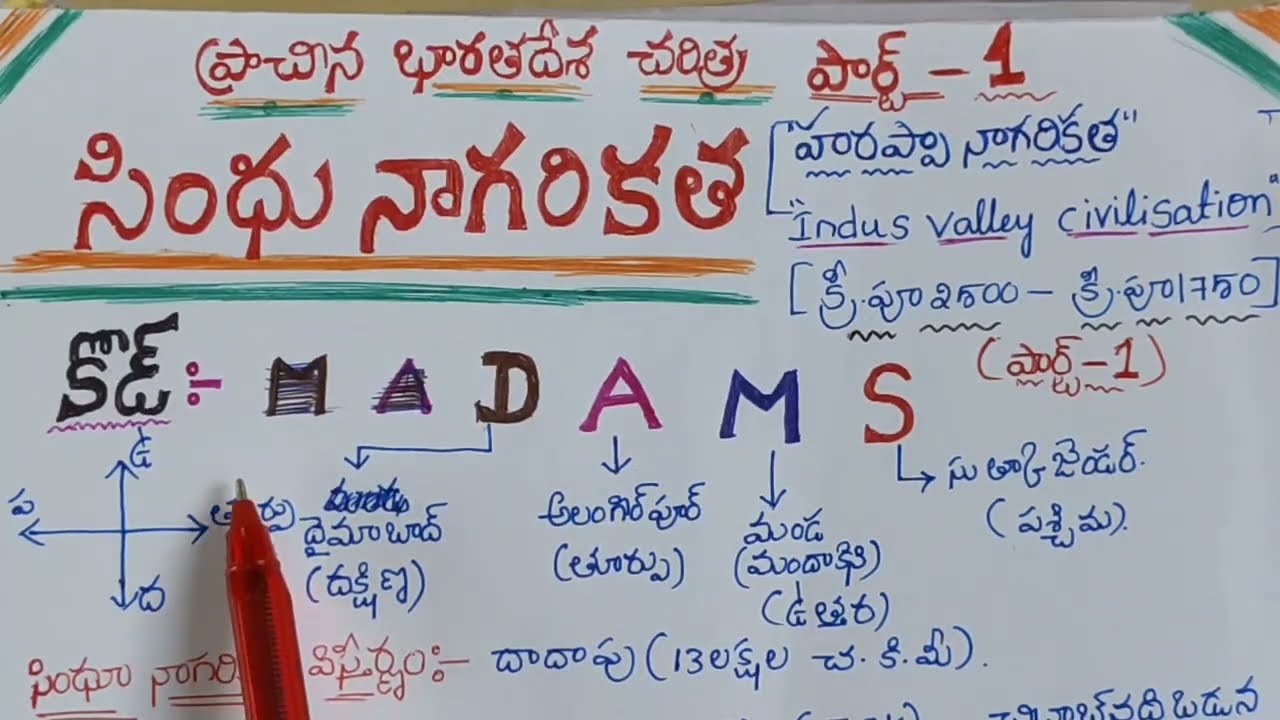 ప్రాచీన భారతదేశ చరిత్ర పార్ట్ - 1
సింధు నాగరికత
"హరప్పా నాగరికత"
"Indus valley civilisation"
[క్రీ.పూ 2500 - క్రీ.పూ 1750]
(పార్ట్-1)
కోడ్ :- M A D A M S
ఉ
ప
తూర్పు
ద
దైమాబాద్
(దక్షిణ)
అలంగిర్ పూర్
(తూర్పు)
మండ
(మందాకిని)
(ఉత్తర)
సుత్కాజెండర్.
(పశ్చిమ).
సింధూ విస్తీర్ణం:- దాదాపు (13 లక్షల చ.కి.మీ).
ఒడున